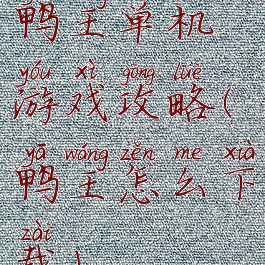 鸭王单机
yóu xì gōng lüè
游戏攻略(
yā wáng zěn me xià
鸭王怎么下
zài
载)